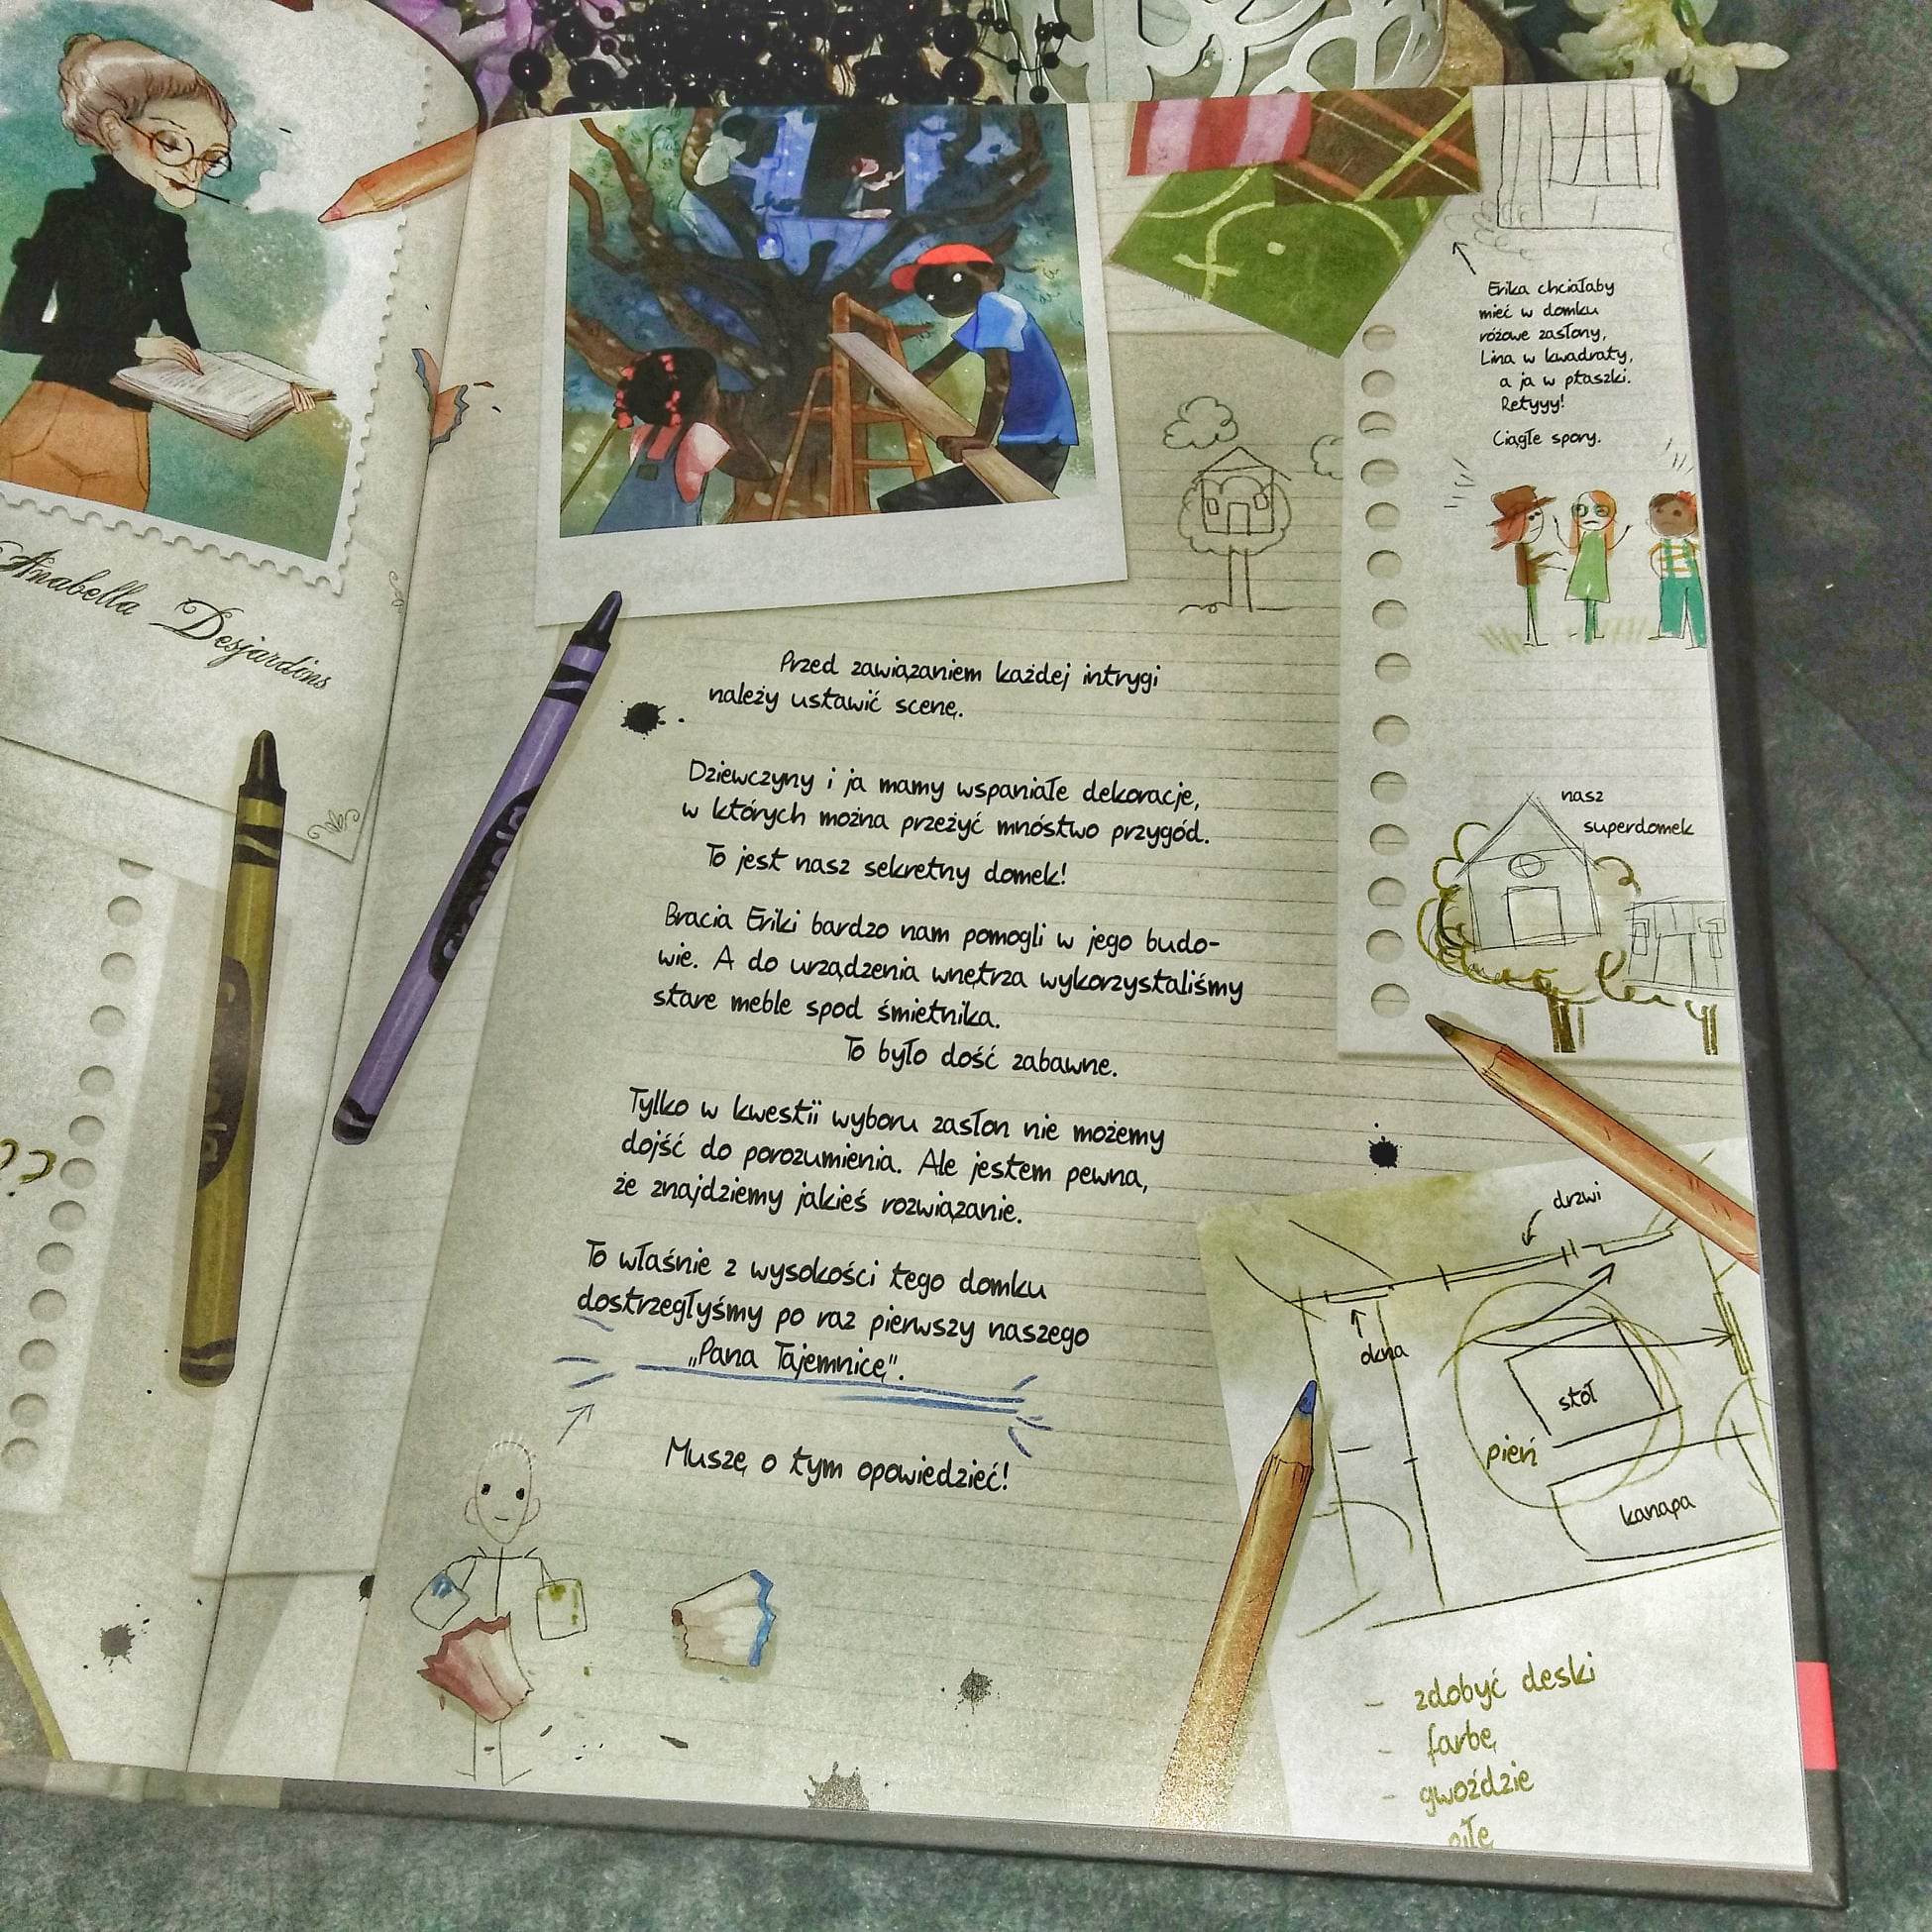 Anabella Desjardins
Przed zawiązaniem każdej intrygi
należy ustawić scenę.
Dziewczyny i ja mamy wspaniałe dekoracje,
w których można przeżyć mnóstwo przygód.
To jest nasz sekretny domek!
Bracia Eriki bardzo nam pomogli w jego budo-
wie. A do urządzenia wnętrza wykorzystaliśmy
stare meble spod śmietnika.
To było dość zabawne.
Tylko w kwestii wyboru zasłon nie możemy
dojść do porozumienia. Ale jestem pewna,
że znajdziemy jakieś rozwiązanie.
To właśnie z wysokości tego domku
dostrzegłyśmy po raz pierwszy naszego
„Pana Tajemnicę".
Muszę o tym opowiedzieć!
Erika chciałaby
mieć w domku
różowe zasłony,
Lina w kwadraty,
a ja w ptaszki.
Retyyy!
Ciągłe spory.
nasz
superdomek
drzwi
okna
stół
pień
kanapa
- zdobyć deski
- farbę
- gwoździe
piłę